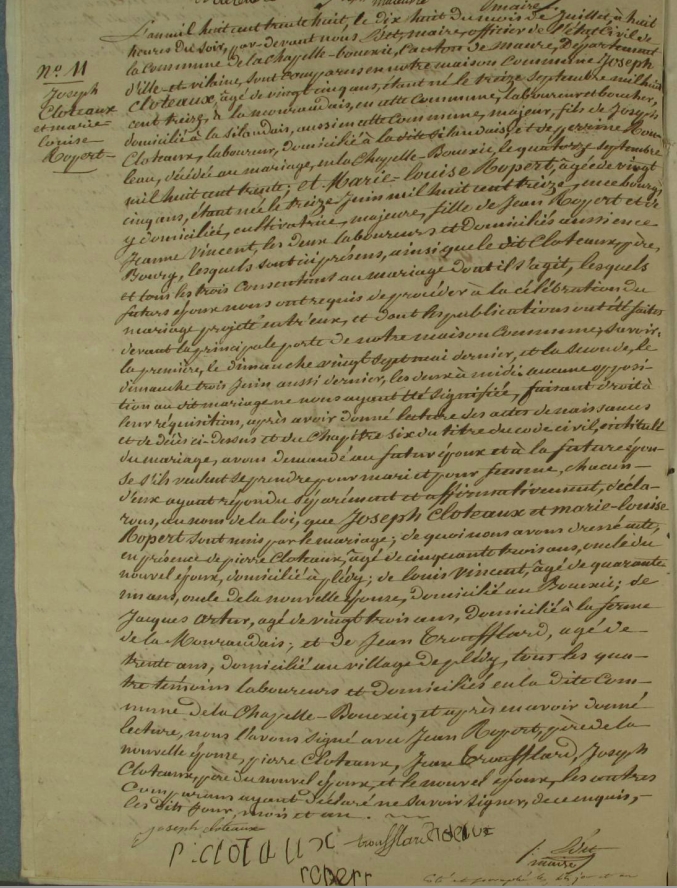 maire
L'an mil huit cent trente huit, le dix huit du mois de Juillet, à huit
heures du soir, par-devant nous Bet, maire, officier de l'état Civil de
la Commune de la chapelle-bouexic, Canton de maure, Département
d'ille-et-vilaine, sont Comparus en notre maison Commune Joseph
Cloteaux, âgé de vingt cinq ans, étant né le treize septembre mil huit
cent treize, à la mouraudais, en cette Commune, laboureur et boucher,
domicilié à la silandais, aussi en cette Commune, majeur, fils de Joseph
Cloteaux, laboureur, domicilié à la dite silandais, et de perrine
leau, décédée au mariage, en la Chapelle-Bouexic, le quatorze septembre
mil huit cent trente; et Marie-louise Ropert, âgée de vingt
cinq ans, étant née le treize Juin mil huit cent treize, en ce bourg,
y domiciliée, cultivatrice, majeure, fille de Jean Ropert et de
Jeanne Vincent, les deux laboureurs et Domiciliés aussi en ce
Bourg, lesquels sont ici présens, ainsi que le dit Cloteaux, père,
et tous les trois Consentans au mariage dont il s'agit, lesquels
futurs époux nous ont requis de procéder à la célébration du
mariage projeté entr'eux, et dont les publications ont été faites
devant la principale porte de notre maison Commune; savoir:
la première, le dimanche vingt sept mai dernier, et la seconde, le
dimanche trois Juin aussi dernier, les deux à midi. aucune opposi-
tion au dit mariage ne nous ayant été signifiée, faisant droit à
leur réquisition, après avoir donné lecture des actes de naissances
et de décès ci-dessus et du Chapitre six du titre du code civil, intitulé
du mariage, avons demandé au futur époux et à la future épou-
se s'ils veulent se prendre pour mari et pour femme, chacun
d'eux ayant répondu séparément et affirmativement, décla-
rons, au nom de la loi, que Joseph Cloteaux et marie-louise
Ropert sont unis par le mariage; de quoi nous avons dressé acte,
en présence de pierre Cloteaux, âgé de cinquante trois ans, oncle du
nouvel époux, domicilié à plédy; de louis Vincent, âgé de quarante-
un ans, oncle de la nouvelle épouse, domicilié au Bouexic; de
Jacques artur, agé de vingt trois ans, domicilié à la ferme
de la Mouraudais; et de Jean Troufflard, agé de
trente ans, domicilié au village de plédy, tous les qua-
tre témoins laboureurs et domiciliés en la dite Com-
mune de la Chapelle-Bouexic, et après en avoir donné
lecture, nous l'avons signé avec Jean Ropert, père de la
nouvelle épouse, pierre Cloteaux, Jean Troufflard, Joseph
Cloteaux, père du nouvel époux, et le nouvel époux, les autres
Comparans ayant déclaré ne savoir signer, de ce enquis,-
les dits jour, mois et an.
No. 11
Joseph
Cloteaux
et marie-
louise
Ropert
Joseph cloteaux
P. cloTAUX
troufflard
roperr
Bet
maire